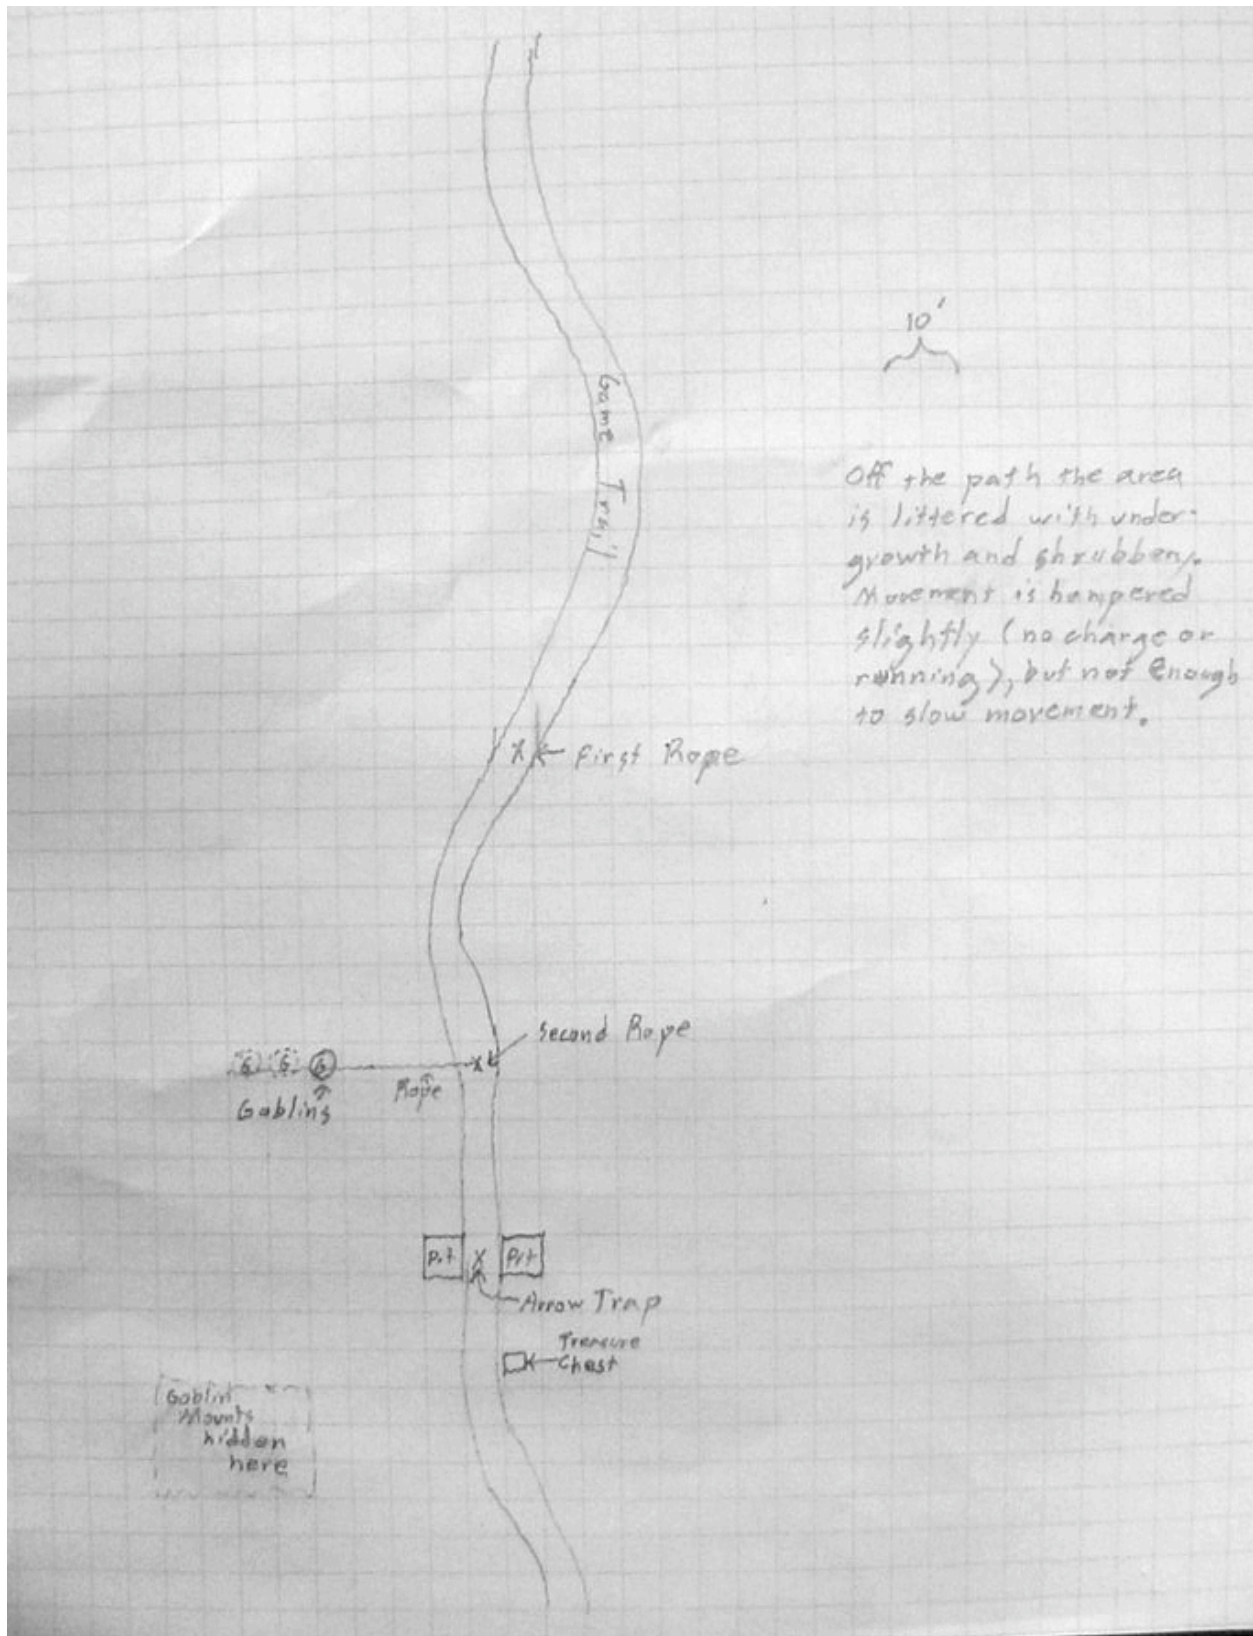 10'
Game Trail
Off the path the area
is littered with under-
growth and shrubbery.
Movement is hampered
slightly (no charge or
running), but not enough
to slow movement.
X ← First Rope
Second Rope
G G G X
Rope
Goblins
Pit X Pit
Arrow Trap
Treasure
Chest
Goblin
Mounts
hidden
here